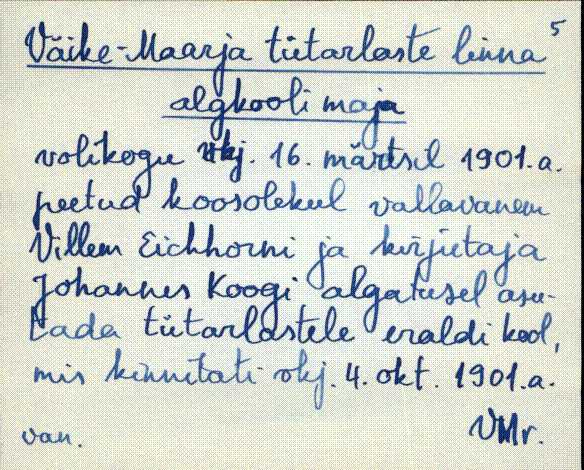 5
Väike-Maarja tütarlaste linna
algkooli maja
volikogu vkj. 16. märtsil 1901.a.
peetud koosolekul vallavanem
Villem Eichhorni ja kirjutaja
Johannes Koogi algatusel asu-
tada tütarlastele eraldi kool,
mis kinnitati vkj. 4. okt. 1901.a.
VMr.
van.